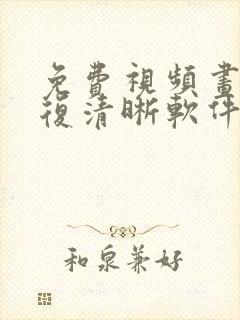 免費視頻畫
復清晰軟件
和泉兼好